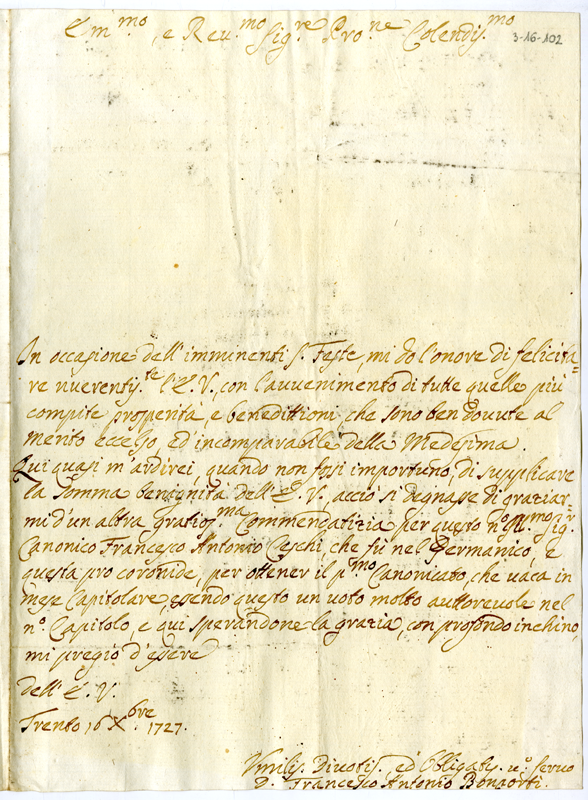 Em.mo, e Reu.mo Sig.re Pro.ne Colendis.mo
3-16-102
In occasione dell'imminenti S. Feste, mi do l'onore di felicita=
re riuerentis.te l'E.V., con l'auuenimento di tutte quelle più
compite prosperità, e benedittioni, che sono ben douute al
merito eccesso, ed incomparabile della Medesima.
Qui quasi m'ardirei, quando non fossi importuno, di supplicare
la somma benignità dell'E.V. acciò si degnasse di graziar=
mi d'un altra gratios.ma Commendatizia per questo n.ro Ill.mo Sig.r
Canonico Francesco Antonio Ceschi, che fù nel Germanico, e
questa pro coronide, per ottener il p.mo Canonicato, che uaca in
mese Capitolare, essendo questo un uoto molto auttoreuole nel
n.o Capitolo, e qui sperandone la grazia, con profondo inchino
mi pregio d'essere
dell'E.V.
Trento 16 Xbre 1727.
Vmilis. Diuotis. ed Obligatis. u.o seruo
D. Francesco Antonio Bonporti.